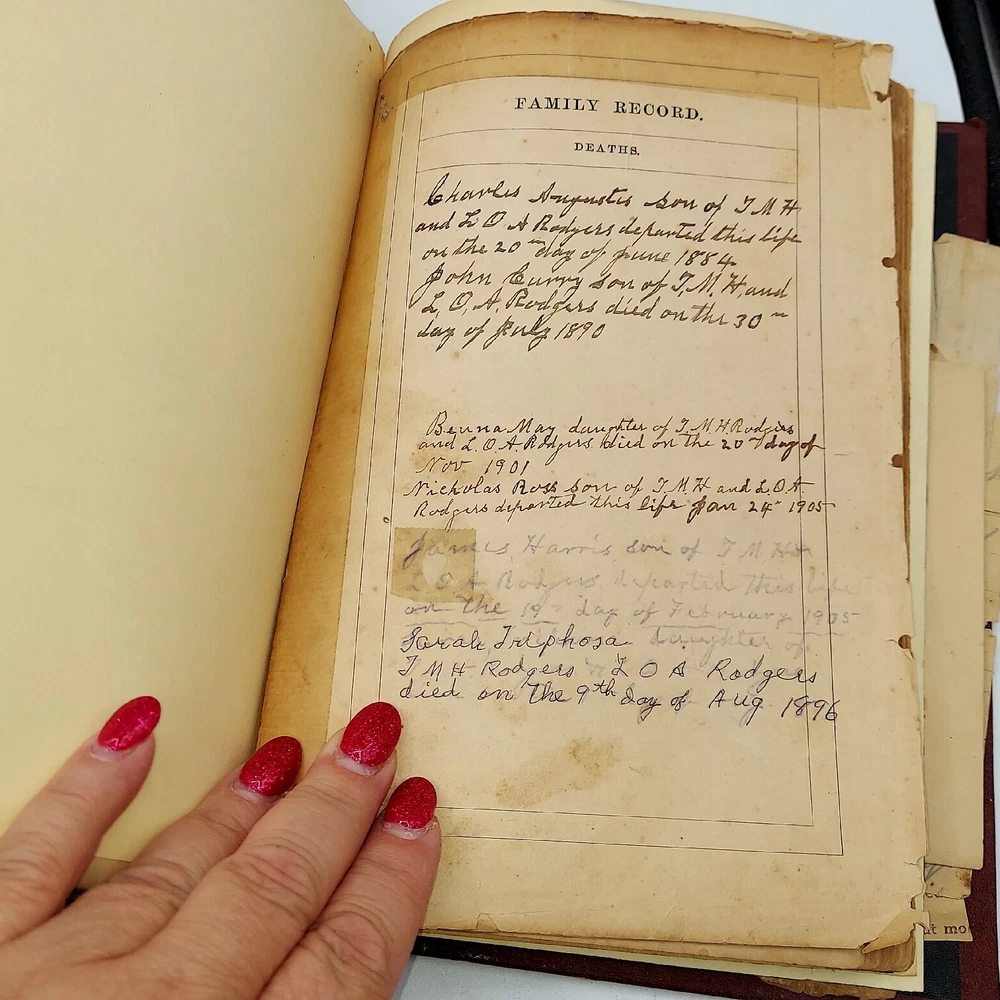 FAMILY RECORD.
DEATHS.
Charles Augustis son of T M H
and L O A Rodgers departed this life
on the 20th day of june 1884
John Curry son of T, M, H, and
L, O, A, Rodgers died on the 30th
day of July 1890
Beuna May daughter of T. M. H Rodgers
and L. O. A. Rodgers died on the 20th day of
Nov 1901
Nicholas Ross son of T. M. H and L. O. A.
Rodgers departed this life Jan 24th 1905
James Harris son of T M H &
L O A Rodgers departed this life
on the 19th day of February 1905
Sarah Triphosa daughter of
T M H Rodgers L O A Rodgers
died on the 9th day of Aug 1896
at mo